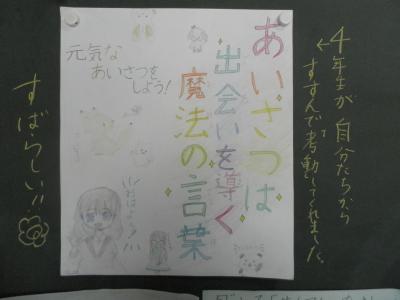 4年生が自分たちから
すすんで考動してくれました。
あいさつは
出会いを導く
魔法の言葉
元気な
あいさつを
しよう!
おはよう
すばらしい!!